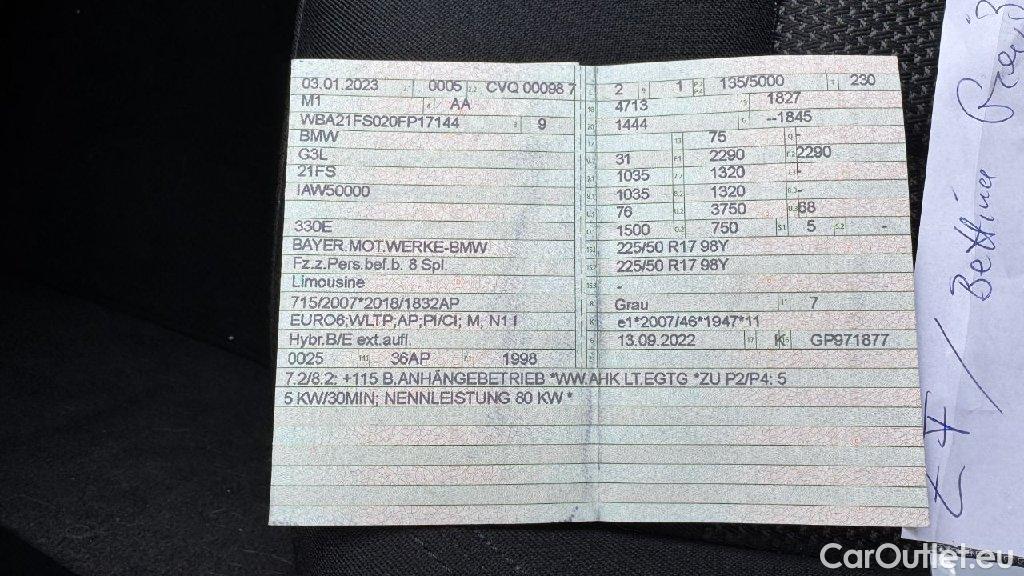 03.01.2023 0005 CVQ 00098 7
M1 AA
WBA21FS020FP17144 9
BMW
G3L
21FS
IAW50000
330E
BAYER.MOT.WERKE-BMW
Fz.z.Pers.bef.b. 8 Spl.
Limousine
715/2007*2018/1832AP
EURO6;WLTP;AP;PI/CI; M, N1 I
Hybr.B/E ext.aufl.
0025 36AP 1998
2 1 135/5000 230
4713 1827
1444 --1845
75 -
31 2290 2290
1035 1320 -
1035 1320 -
76 3750 68
1500 750 5 -
225/50 R17 98Y
225/50 R17 98Y
-
Grau 7
e1*2007/46*1947*11
13.09.2022 K GP971877
7.2/8.2: +115 B.ANHÄNGEBETRIEB *WW.AHK LT.EGTG *ZU P2/P4: 5
5 KW/30MIN; NENNLEISTUNG 80 KW *
Bettina
CarOutlet.eu